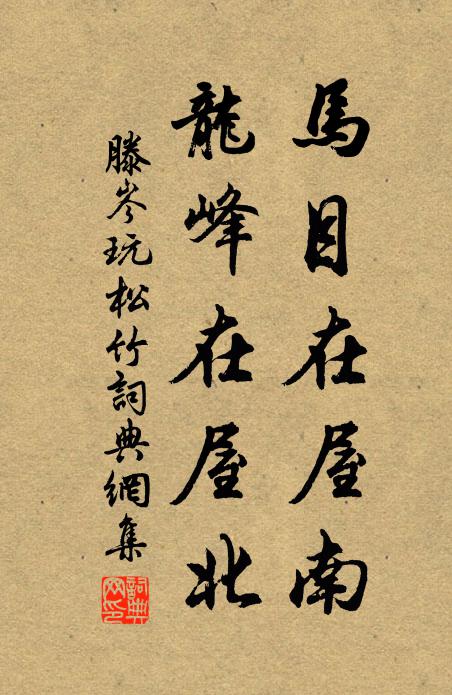 馬目在屋南
龍峰在屋北
滕岑玩松竹詞典網集
詞典網印